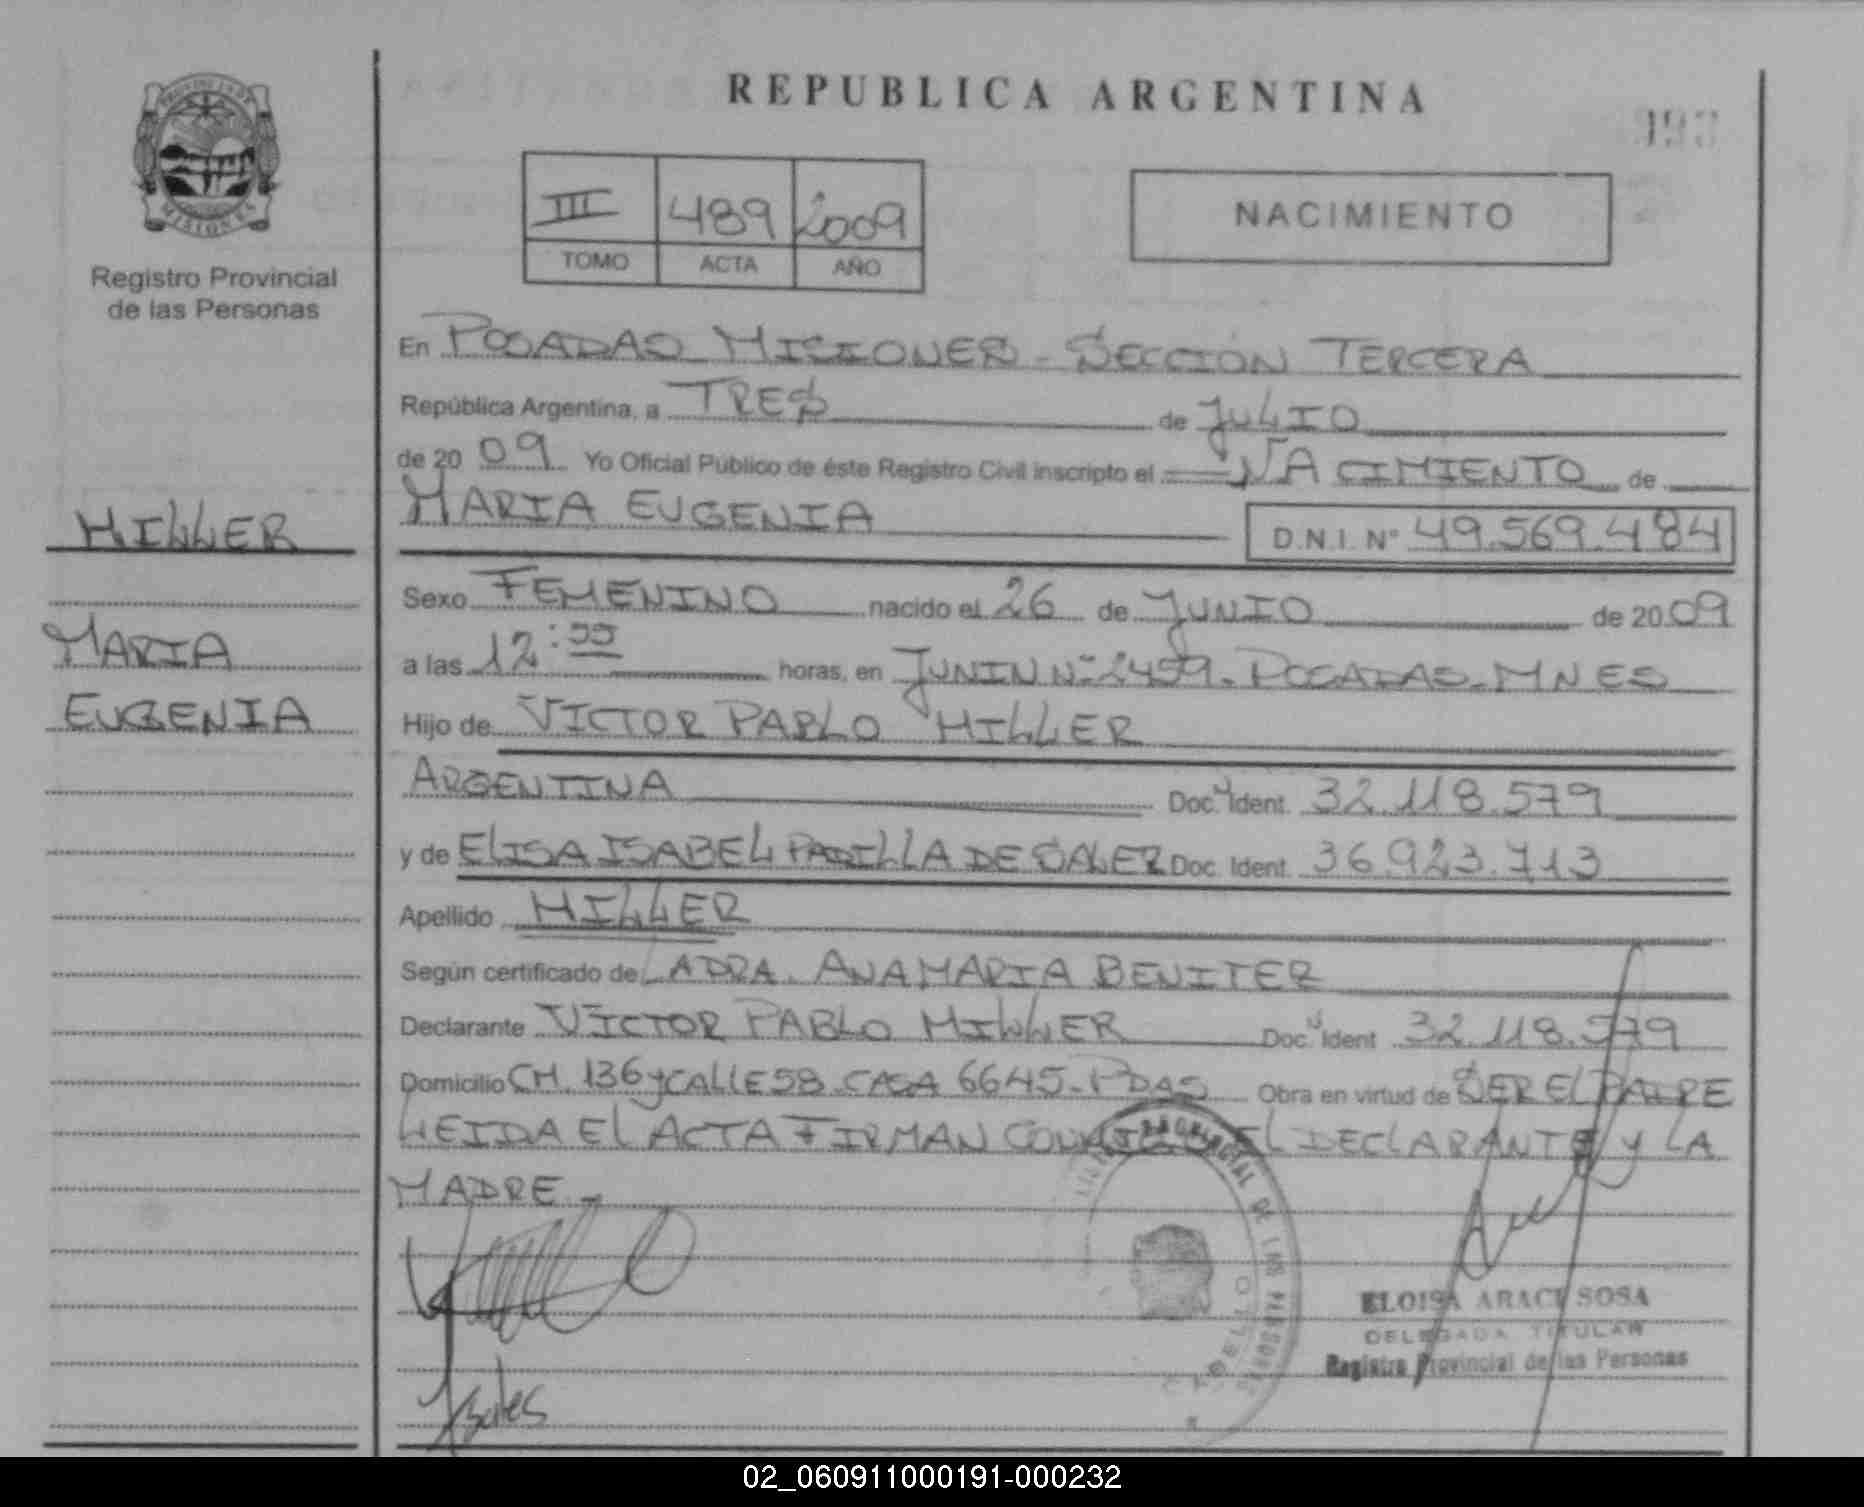 REPUBLICA ARGENTINA
993
PROVINCIA DE
MISIONES
Registro Provincial
de las Personas
III 489 2009
TOMO ACTA AÑO
NACIMIENTO
En POSADAS MISIONES - SECCIÓN TERCERA
República Argentina, a TRES de JULIO
de 2009 Yo Oficial Público de éste Registro Civil inscripto el NACIMIENTO de
MARIA EUGENIA D.N.I. Nº 49.569.484
HILLER
MARIA
EUGENIA
Sexo FEMENINO nacido el 26 de JUNIO de 2009
a las 12:55 horas, en JUNIN Nº 2459 - POSADAS - MNES
Hijo de VICTOR PABLO HILLER
ARGENTINA Doc. Ident. 32.118.579
y de ELISA ISABEL PADILLA DE SALER Doc. Ident. 36.923.713
Apellido HILLER
Según certificado de LA DRA. ANA MARIA BENITEZ
Declarante VICTOR PABLO HILLER Doc. Ident 32.118.579
Domicilio CH. 136 y CALLE 58 CASA 6645 - PDAS Obra en virtud de SER EL PADRE
LEIDA EL ACTA FIRMAN EL DECLARANTE y LA
MADRE.-
ELOISA ARACI SOSA
DELEGADA TITULAR
Registro Provincial de las Personas
02_060911000191-000232